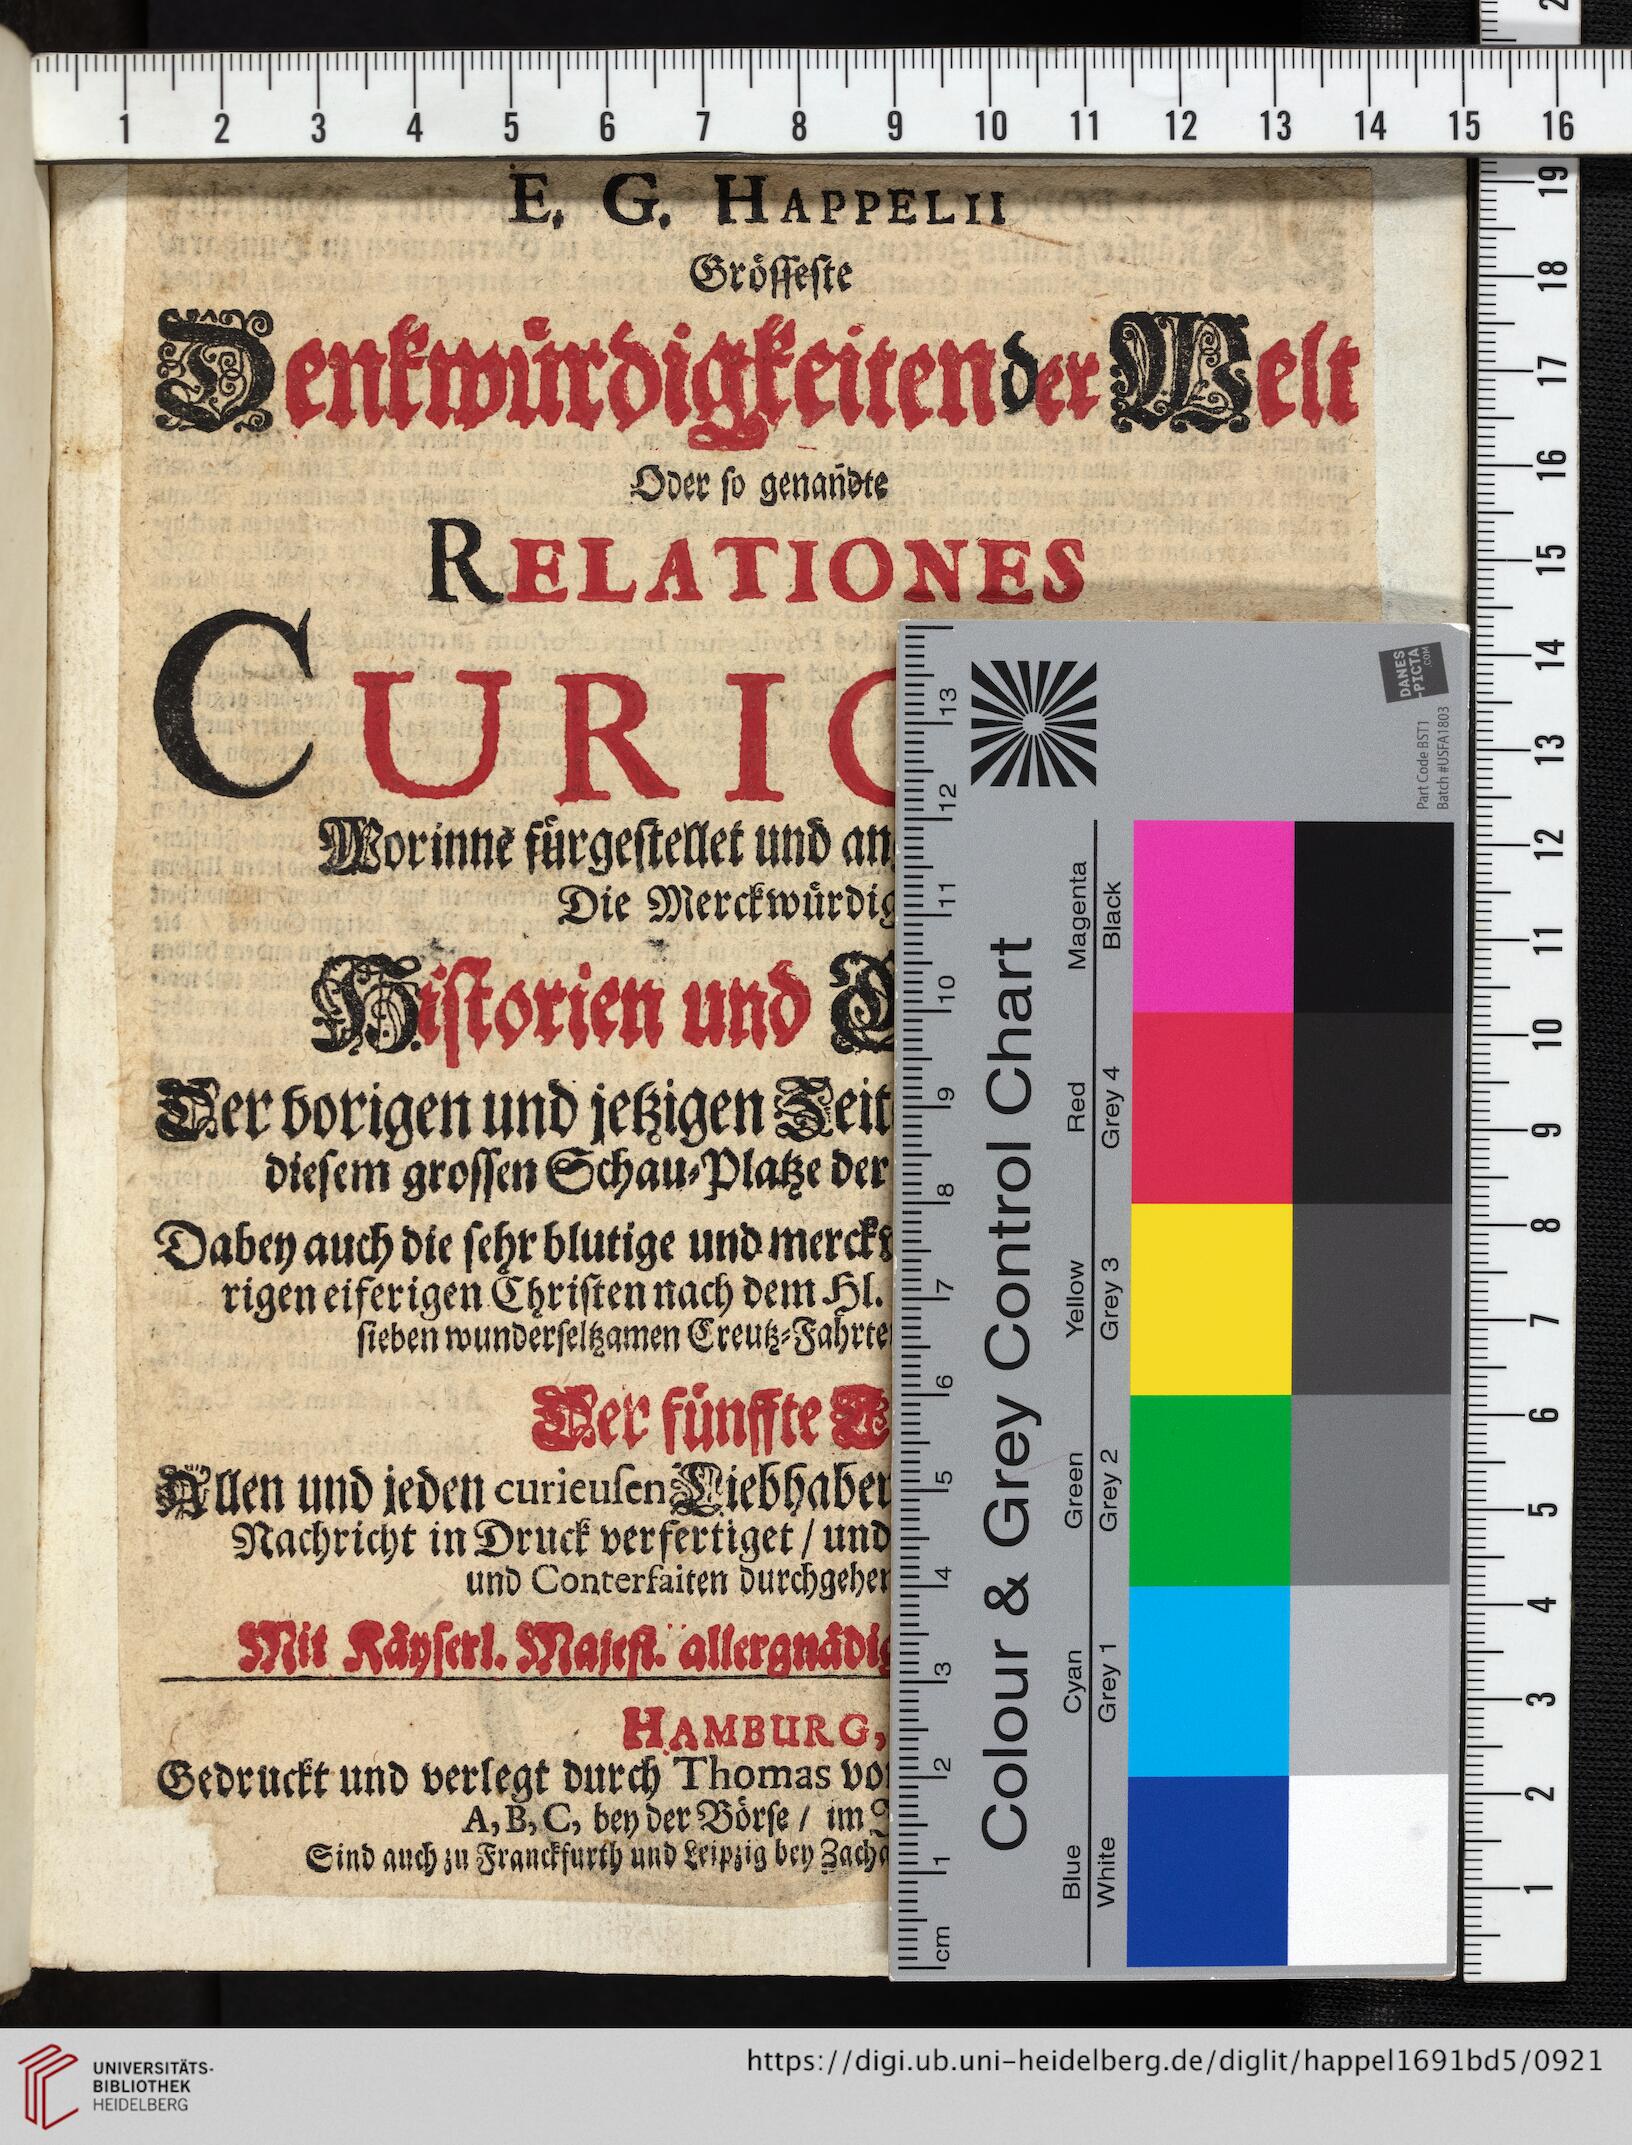 1 2 3 4 5 6 7 8 9 10 11 12 13 14 15 16
E. G. HAPPELII
Grösseste
Denkwürdigkeiten der Welt
Oder so genañdte
RELATIONES
CURIO
Worinne fürgestellet und an
Die Merckwürdig
Historien und
Der vorigen und jetzigen Zeit
diesem grossen Schau-Platze der
Dabey auch die sehr blutige und merck
rigen eiferigen Christen nach dem Hl.
sieben wunderseltzamen Creutz-Fahrte
Der fünffte
Allen und jeden curieusen Liebhaber
Nachricht in Druck verfertiget / und
und Conterfaiten durchgehen
Mit Käyserl. Majest. allergnädig
HAMBURG,
Gedruckt und verlegt durch Thomas vo
A, B, C, bey der Börse / im
Sind auch zu Franckfurth und Leipzig bey Zacha
Colour & Grey Control Chart
Blue Cyan Green Yellow Red Magenta
White Grey 1 Grey 2 Grey 3 Grey 4 Black
cm 1 2 3 4 5 6 7 8 9 10 11 12 13
DANES
-PICTA
.COM
Part Code BST1
Batch #USFA1803
1 2 3 4 5 6 7 8 9 10 11 12 13 14 15 16 17 18 19
UNIVERSITÄTS-
BIBLIOTHEK
HEIDELBERG
https://digi.ub.uni-heidelberg.de/diglit/happel1691bd5/0921